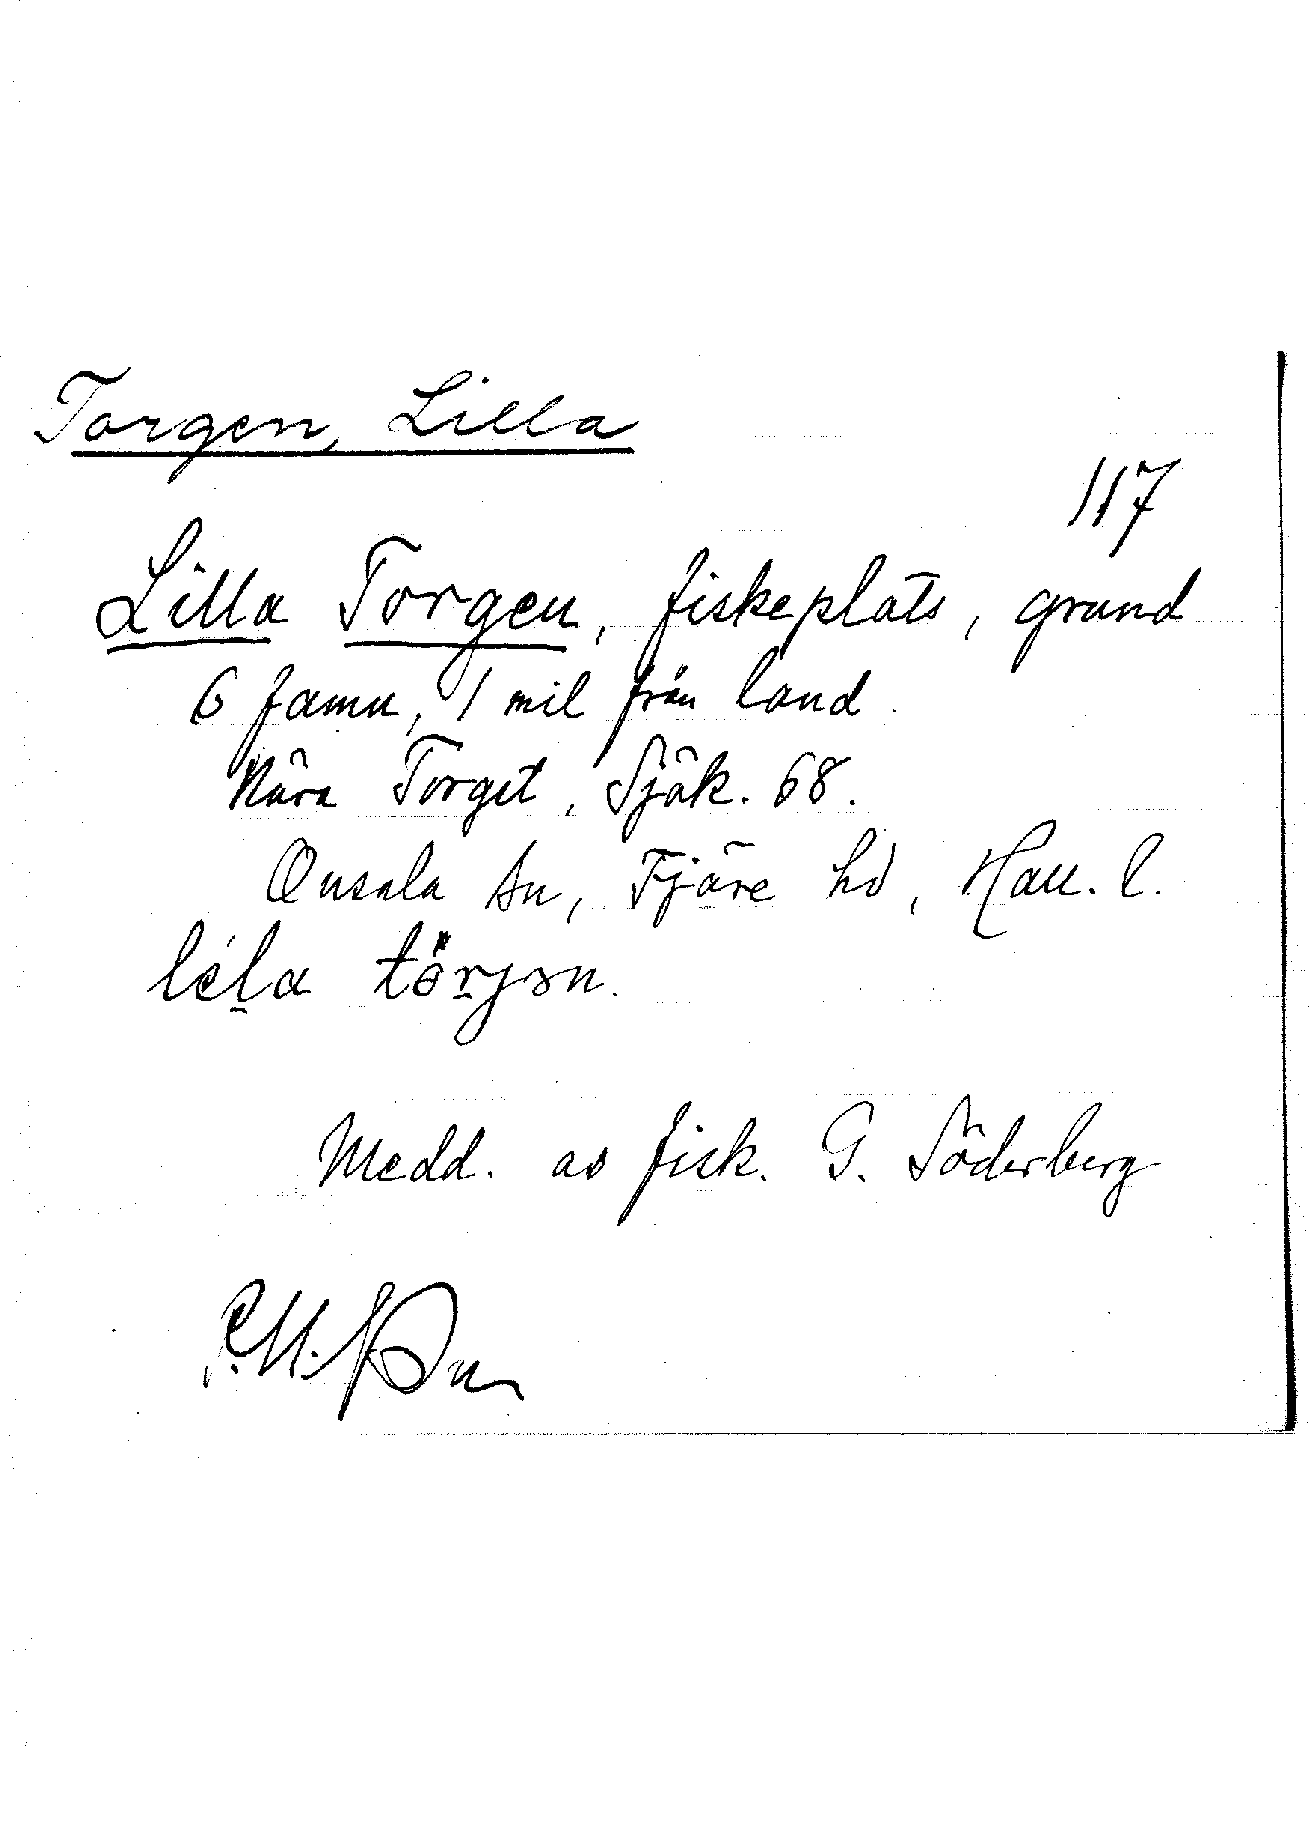 Torgen, Lilla
117
Lilla Torgen, fiskeplats, grund
6 famn, 1 mil från land
Nära Torget, Sjök. 68.
Onsala sn, Fjäre hd, Hall. l.
Medd. av fisk. G. Söderberg